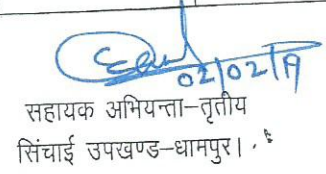 02/02/19
सहायक अभियन्ता–तृतीय
सिंचाई उपखण्ड–धामपुर।